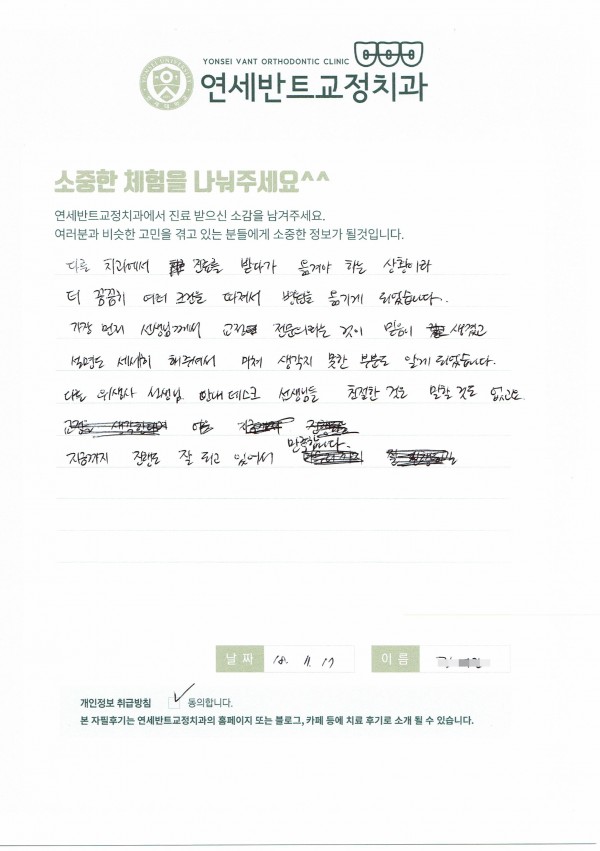 YONSEI VANT ORTHODONTIC CLINIC
연세반트교정치과
소중한 체험을 나눠주세요^^
연세반트교정치과에서 진료 받으신 소감을 남겨주세요.
여러분과 비슷한 고민을 겪고 있는 분들에게 소중한 정보가 될것입니다.
다른 치과에서 진료를 받다가 옮겨야 하는 상황이라
더 꼼꼼히 여러 조건을 따져서 병원을 옮기게 되었습니다.
가장 먼저 선생님께서 교정 전문의라는 것이 믿음이 생겼고
설명도 세세히 해주셔서 미처 생각지 못한 부분도 알게 되었습니다.
다른 위생사 선생님, 안내 데스크 선생님들 친절한 것도 말할 것도 없고요.
만족합니다.
지금까지 진행도 잘 되고 있어서
날 짜 18. 11. 17 이 름
개인정보 취급방침 동의합니다.
본 자필후기는 연세반트교정치과의 홈페이지 또는 블로그, 카페 등에 치료 후기로 소개 될 수 있습니다.